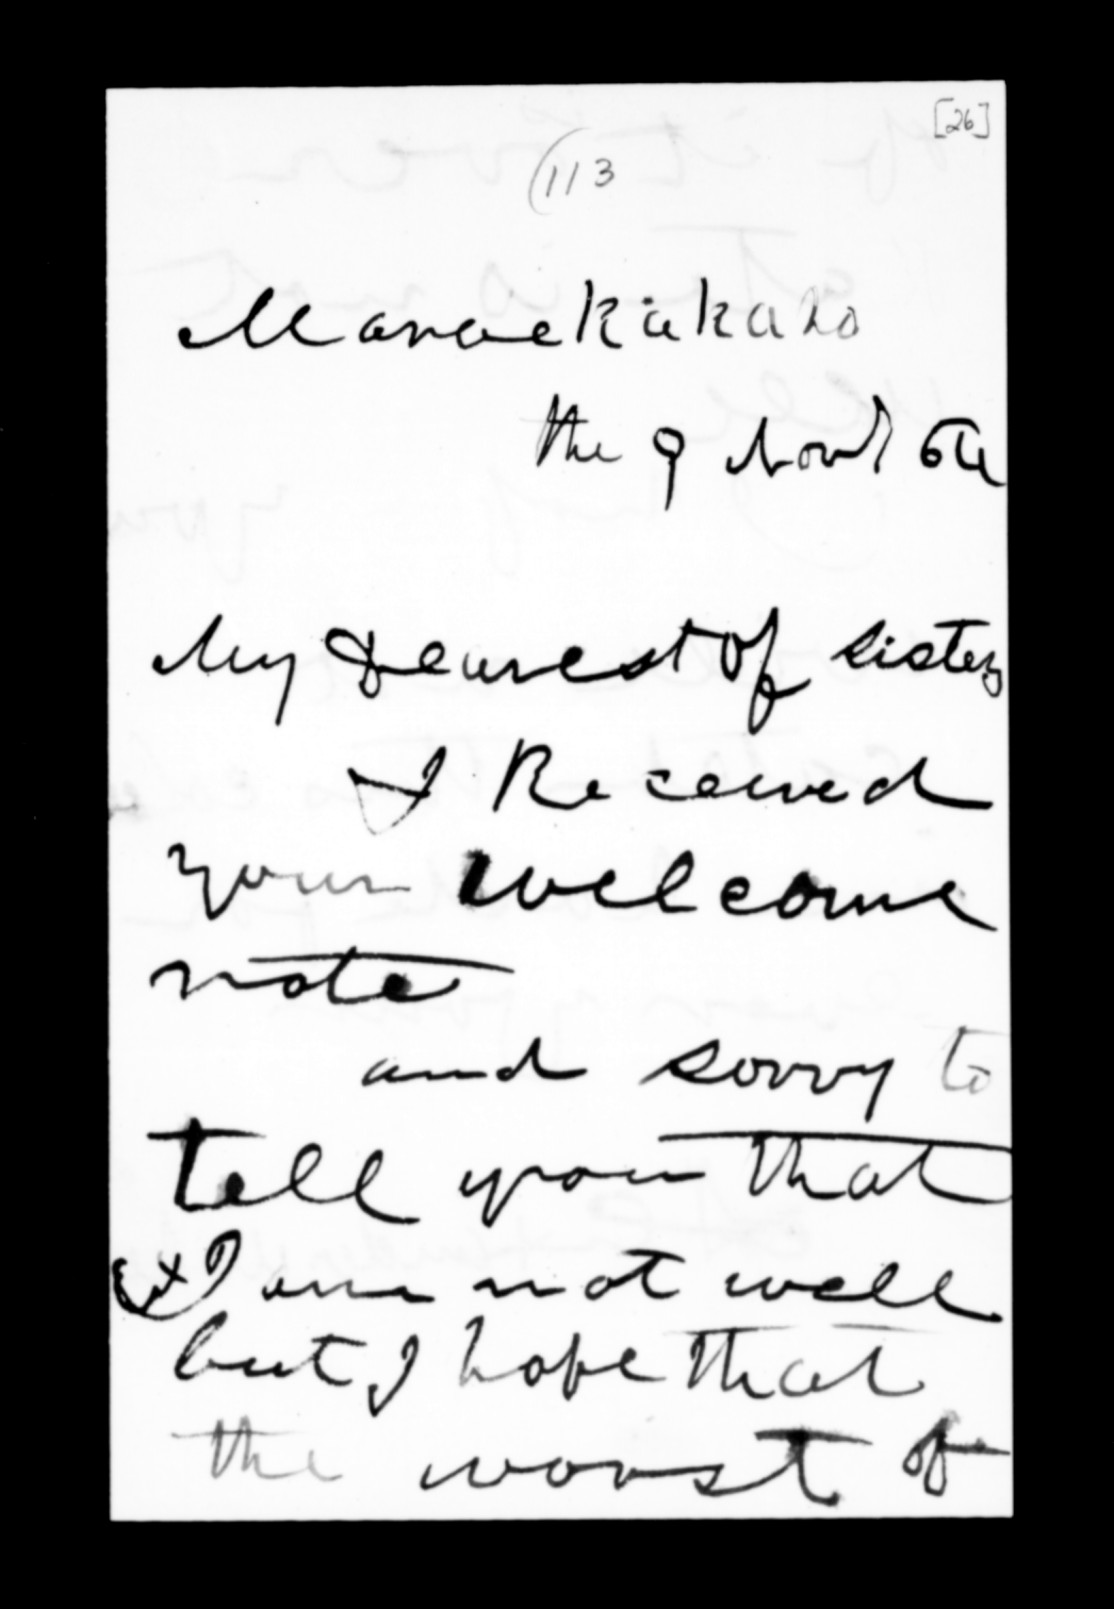 [26]
(113
Maraekakaho
the 9 Novr 64
My Dearest of sisters
I Received
your welcome
note
and sorry to
tell you that
I am not well
but I hope that
the worst of